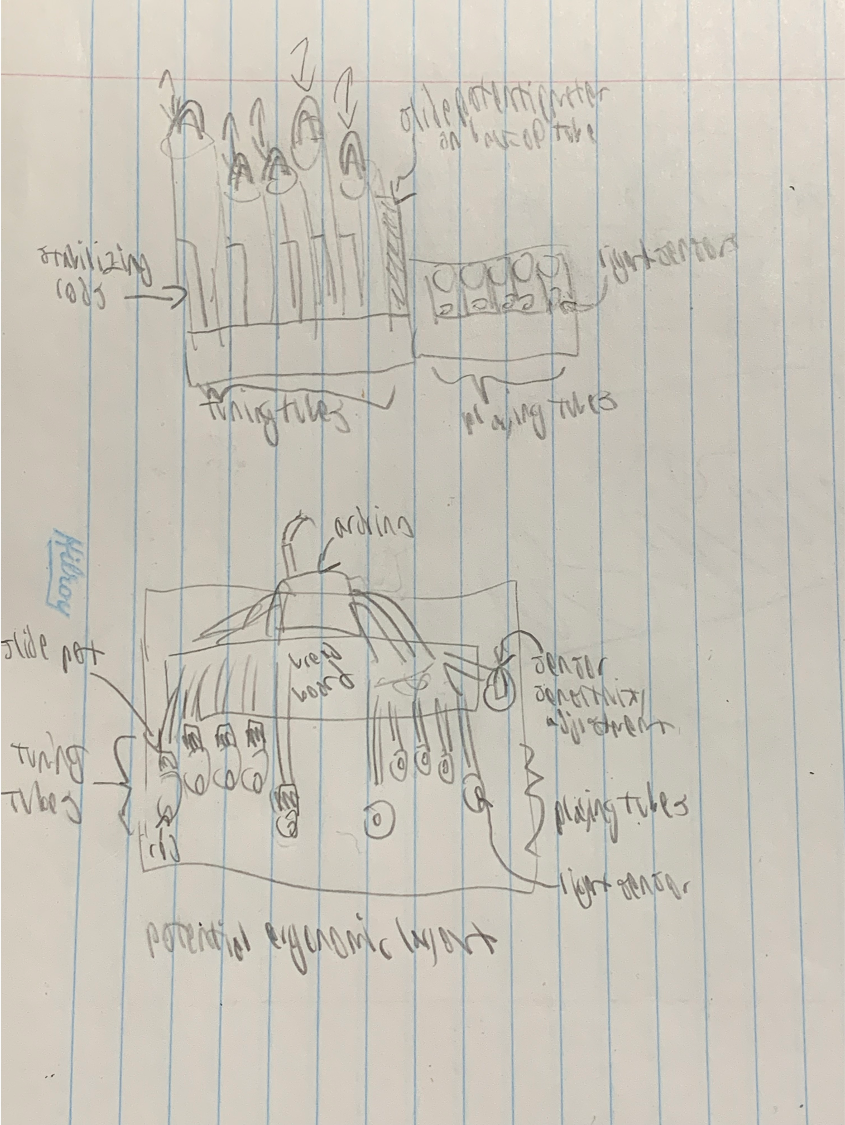 slide potentiometer
on back of tube
stabilizing
rods
light sensors
tuning tubes
playing tubes
Hilroy
arduino
slide pot
bread
board
sensor
sensitivity
adjustment
tuning
tubes
playing tubes
rod
light sensor
potential ergonomic layout